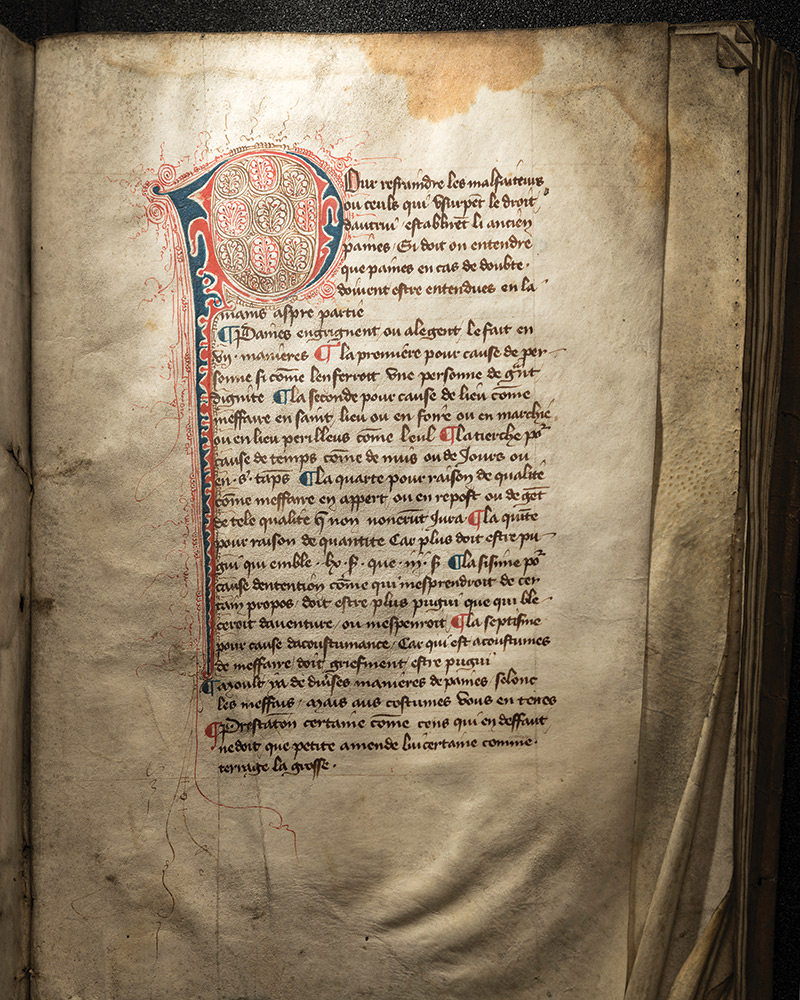 Pour restraindre les malfaiteurs
ou ceuls qui vsurpēt le droit
dautrui / establirēt li ancien
paines / Si doit on entendre
que paines en cas de doubte ·
doiuent estre entendues en la
mains aspre partie
¶ Paines engrignent ou alegent le fait en
vij · manieres ¶ la premiere pour cause de per
sonne si cōme lenferroit vne personne de grāt
dignite ¶ la seconde pour cause de lieu cōme
meffaire en saint lieu ou en foire ou en marchie
ou en lieu perilleus cōme leul ¶ la tierche po^r
cause de temps cōme de nuis ou de Jours ou
en · s^t · tāps ¶ la quarte pour raison de qualite
cōme meffaire en appert ou en repost ou de gēt
de tele qualite q̄ non Jura ¶ la quīte
pour raison de quantite Car plus doit estre pu
gni qui emble · lx · s · que · iij · s ¶ la sisime po^r
cause dentention cōme qui mesprendroit de cer
tain propos / doit estre plus pugni que qui ble
ceroit dauenture / ou mespenroit ¶ la septisme
pour cause dacoustumance / Car qui est acoustumes
de meffaire / doit griefment estre pugni
¶ Moult ya de diūses manieres de paines selonc
les meffais / mais aus costumes vous en tenes
¶ Prestatōn certaine cōme cens qui en deffaut
ne doit que petite amende lui certaine comme
terrage la grosse ·